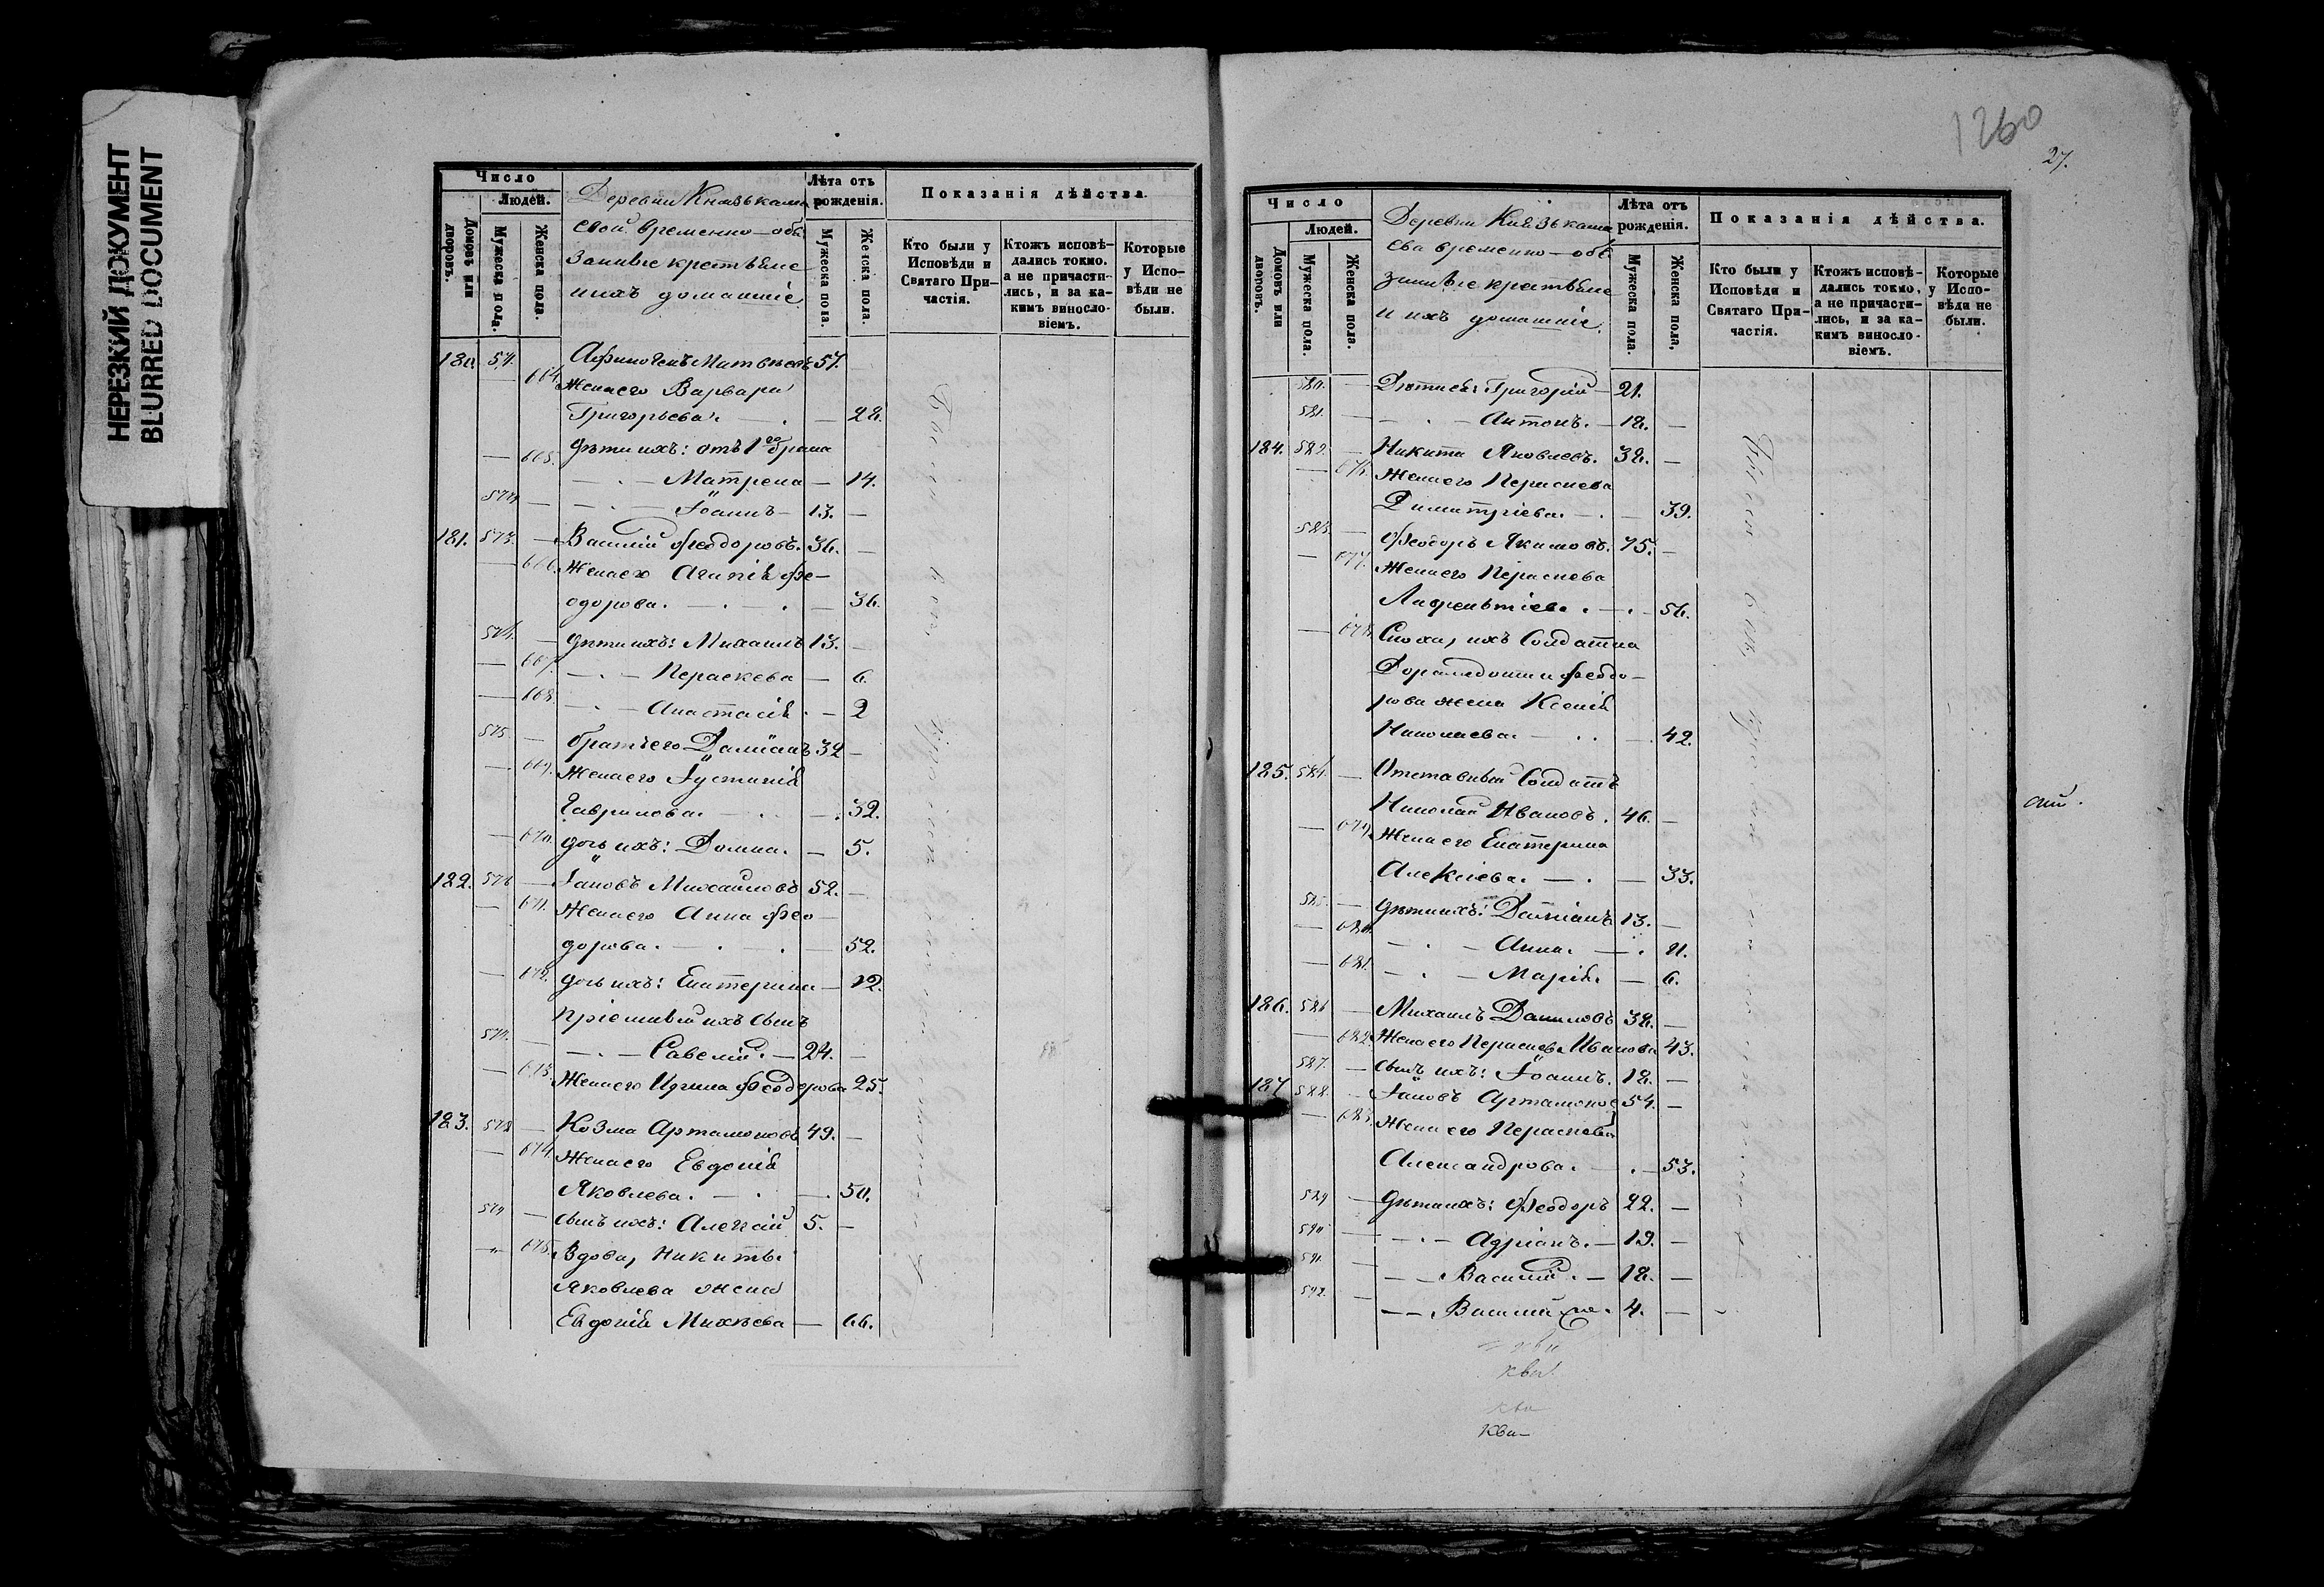 НЕРЕЗКИЙ ДОКУМЕНТ
BLURRED DOCUMENT
Число
Людей.
Домовъ или дворовъ.
Мужеска пола.
Женска пола.
Деревни Князькаша
свой временно-обя
занные крестьяне
и ихъ домашніе
Лѣта отъ рожденія.
Мужеска пола.
Женска пола.
Показанія дѣйства.
Кто были у Исповѣди и Святаго Причастія.
Ктожъ исповѣдались токмо, а не причастились, и за какимъ винословіемъ.
Которые у Исповѣди не были.
180. 57. Афиногенъ Матвѣевъ 57.
664. Жена его Варвара
Григорьева. — 28.
665. Дѣти ихъ: отъ 1го брака
Матрена — 14.
572 Іоаннъ — 13. —
181. 573. Василій Ѳеодоровъ. 36. —
666. Жена его Агапія Ѳе-
одорова. — 36.
574. Дѣти ихъ: Михаилъ 13. —
667. Пераскева — 6.
668. Анастасія. — 2
575. братъ его Даміанъ 32 —
669. Жена его Іустинія
Гаврилова. — 32.
670. дочь ихъ: Домна. — 5.
182. 576 Іаковъ Михайловъ 52. —
671. Жена его Анна Ѳео-
дорова. — 52.
672. дочь ихъ: Екатерина — 12.
Пріемный ихъ сынъ
577. Савелій. — 24. —
673. Жена его Ирина Ѳеодорова 25.
183. 578 Козма Артамоновъ 49. —
674. Жена его Евдокія
Яковлева. — 50.
579 сынъ ихъ: Алексій 5. —
675. Вдова, Никиты
Яковлева жена
Евдокія Михѣева — 66.
Были
1260
27.
Число
Людей.
Домовъ или дворовъ.
Мужеска пола.
Женска пола.
Деревни Князькаша
ева временно-обя
занные крестьяне
и ихъ домашніе.
Лѣта отъ рожденія.
Мужеска пола.
Женска пола,
Показанія дѣйства.
Кто были у Исповѣди и Святаго Причастія.
Ктожъ исповѣдались токмо, а не причастились, и за какимъ винословіемъ.
Которые у Исповѣди не были.
580. Дѣти ея: Григорій — 21.
581. Антонъ. — 18. —
184. 582. Никита Яковлевъ. 38. —
676. Жена его Пераскева
Димитріева. — 39.
583. Ѳеодоръ Акимовъ. 75. —
677. Жена его Пераскева
Лаврентіева. — 56.
678. Сноха, ихъ Солдатка
Ѳеодо-
рова жена Ксенія
Николаева. — 42.
185. 584. Отставный Солдатъ
Николай Ивановъ. 46. —
679. Жена его Екатерина
Алексіева. — 33.
585. Дѣти ихъ: Даміанъ 13. —
680. Анна. — 11.
681. Марія. — 6.
186. 586 Михаилъ Даниловъ 38. —
682. Жена его Пераскева Иванова 43.
587. сынъ ихъ: Іоаннъ. 18. —
187 588. Іаковъ Артамонов 54. —
683. Жена его Пераскева
Александрова. — 53.
589 Дѣти ихъ: Ѳеодоръ 22. —
590 Адріанъ. — 19. —
591. Василій. — 18. —
592. Василій — 4. —
Были
ква
ква